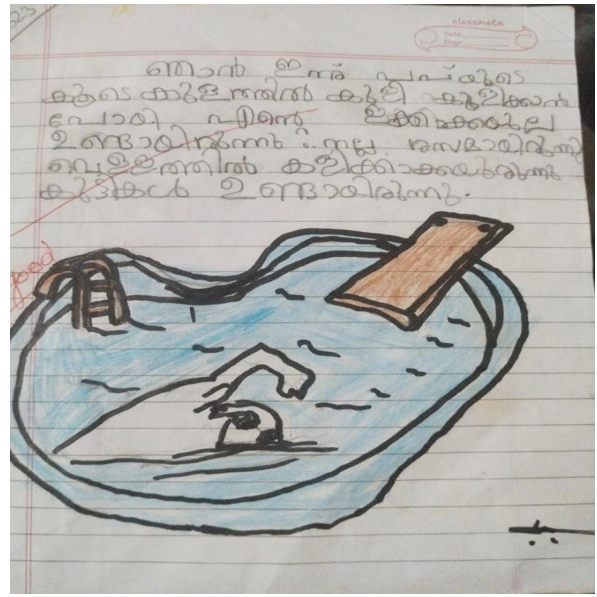 23
classmate
Date
Page
ഞാൻ ഇന്ന് പപ്പയുടെ
കൂടെ കുളത്തിൽ കുളി കുളിക്കാൻ
പോയി പിന്നെ
ഉണ്ടായിരുന്നു നല്ല രസമായിരുന്നു
വെള്ളത്തിൽ
കുട്ടികൾ ഉണ്ടായിരുന്നു.
good